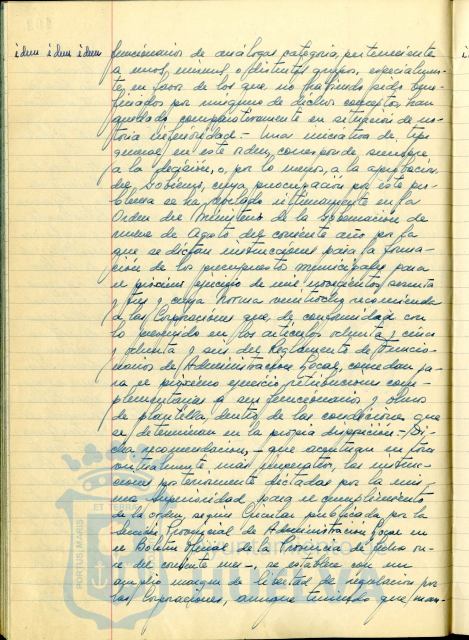 idem idem idem
funcionarios de análogas categoria, perteneciente
a unos, mismos o distintos grupos, especialmen-
te, en favor de los que no habiendo sido bene-
ficiados por ninguno de dichos conceptos, han
quedado comparativamente en situación de no-
toria inferioridad.- Una iniciativa de tipo
general en este orden, corresponde siempre
a la decisión, o, por lo menos, a la aprobación
del Gobierno, cuya preocupación por este pro-
blema se ha reflejado últimamente en la
Orden del Ministerio de la Gobernación de
nueve de Agosto del corriente año por la
que se dictan instrucciones para la forma-
ción de los presupuestos municipales para
el próximo ejercicio de mil novecientos sesenta
y tres y cuya norma veintiocho, recomienda
a las Corporaciones que, de conformidad con
lo prevenido en los artículos ochenta y cinco
y ochenta y seis del Reglamento de Funcio-
narios de Administración Local, concedan pa-
ra el próximo ejercicio retribuciones com-
plementarias a sus funcionarios y obreros
de plantilla, dentro de las condiciones que
se determinan en la propia disposición.- Di-
cha recomendación, - que acentúan en forma
más imperativa, las instruc-
ciones posteriormente dictadas por la mis-
ma Superioridad, para el cumplimiento
de la orden, según Circular publicada por la
Sección Provincial de Administración Local en
el Boletín Oficial de la Provincia de ocho
del corriente mes -, se establece con un
amplio margen de libertad de regulación por
las Corporaciones, aunque teniendo que man-
PORTUS MARIS
ET TERRA